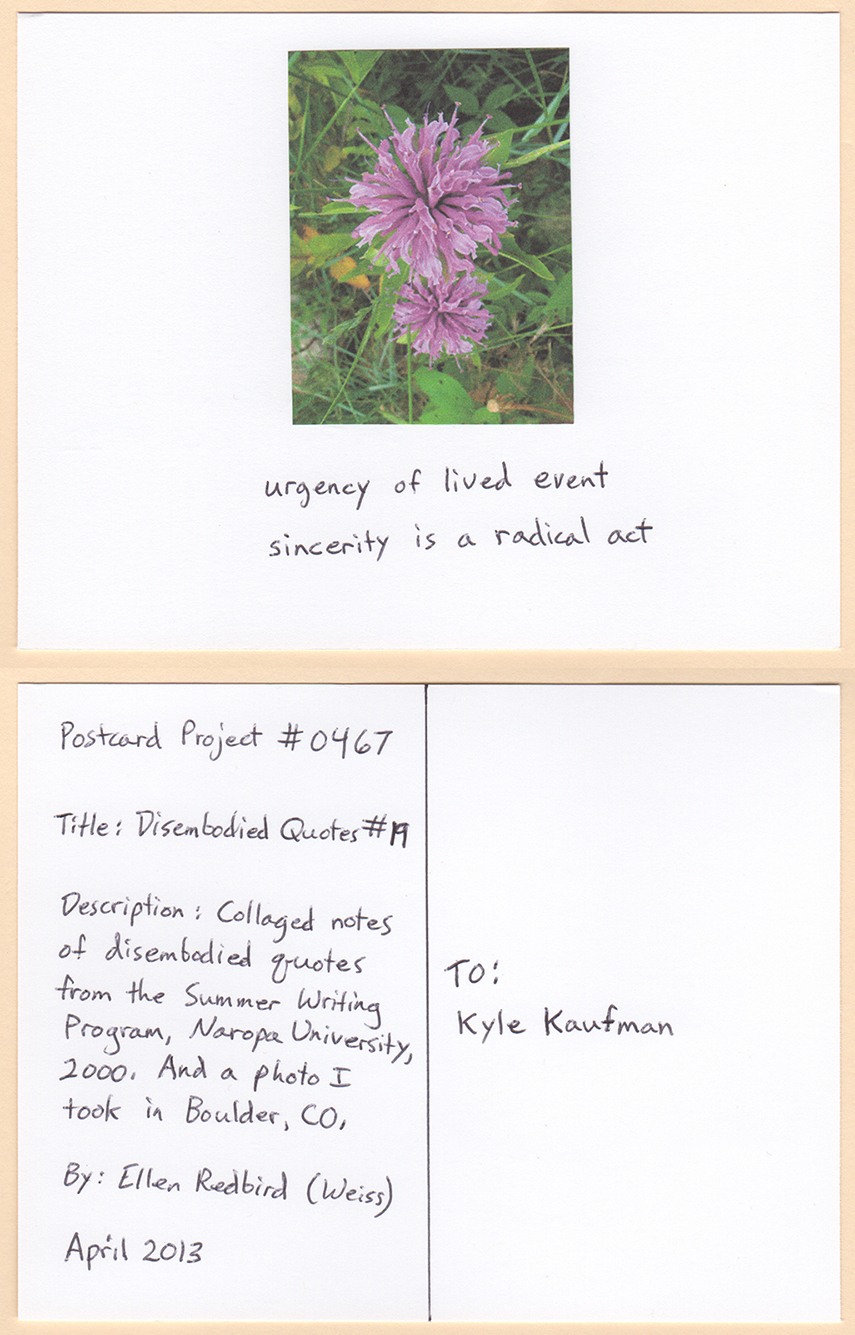 urgency of lived event
sincerity is a radical act
Postcard Project #0467
Title: Disembodied Quotes #19
Description: Collaged notes
of disembodied quotes
from the Summer Writing
Program, Naropa University,
2000. And a photo I
took in Boulder, CO.
By: Ellen Redbird (Weiss)
April 2013
TO:
Kyle Kaufman